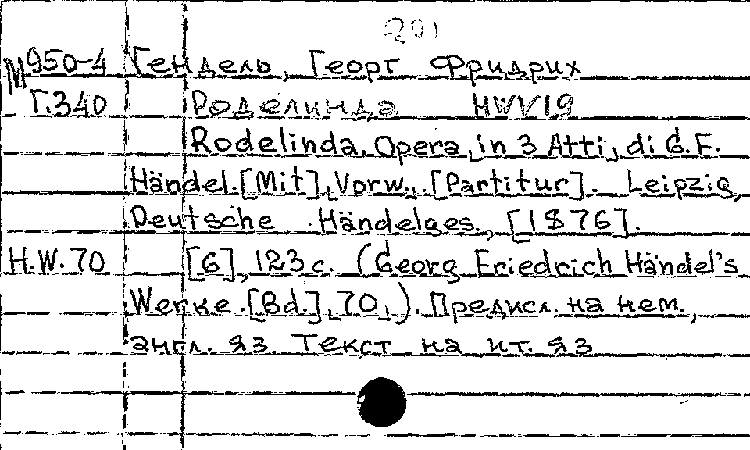 201
М950-4 Гендель, Георг Фридрих
Г.340 Роделинда HWV19
Rodelinda. Opera in 3 Atti, di G.F.
Händel. [Mit] Vorw. [Partitur]. Leipzig,
Deutsche Händelges., [1876].
H.W.70 [6], 123 с. (Georg Friedrich Händel's
Werke. [Bd.] 70.). Предисл. на нем.,
англ. яз. Текст на ит. яз